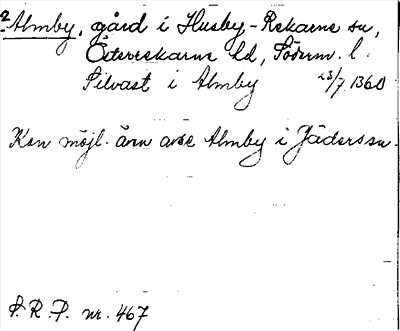 2 Almby, gård i Husby-Rekarne sn,
Österrekarne hd, Söderm. l.
Silvast i Almby 23/7 1360
Kan möjl. även avse Almby i Jäders sn.
S.R.P. nr. 467